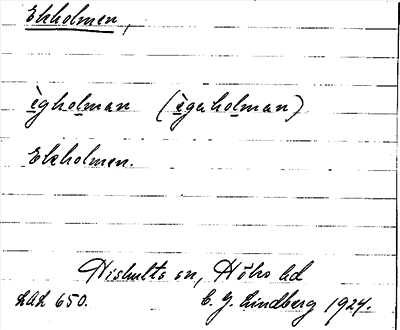 Ekholmen,
ègholman (ègaholman)
Ekholmen.
Hishults sn, Höks hd
LAL 650. C. G. Lindberg 1924.